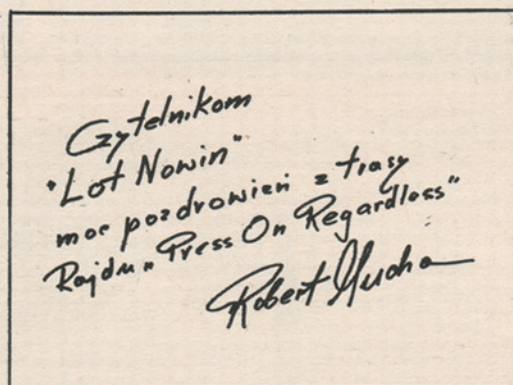 Czytelnikom
"Lot Nowin"
moc pozdrowień z trasy
Rajdu „Press On Regardless"
Robert Mucha